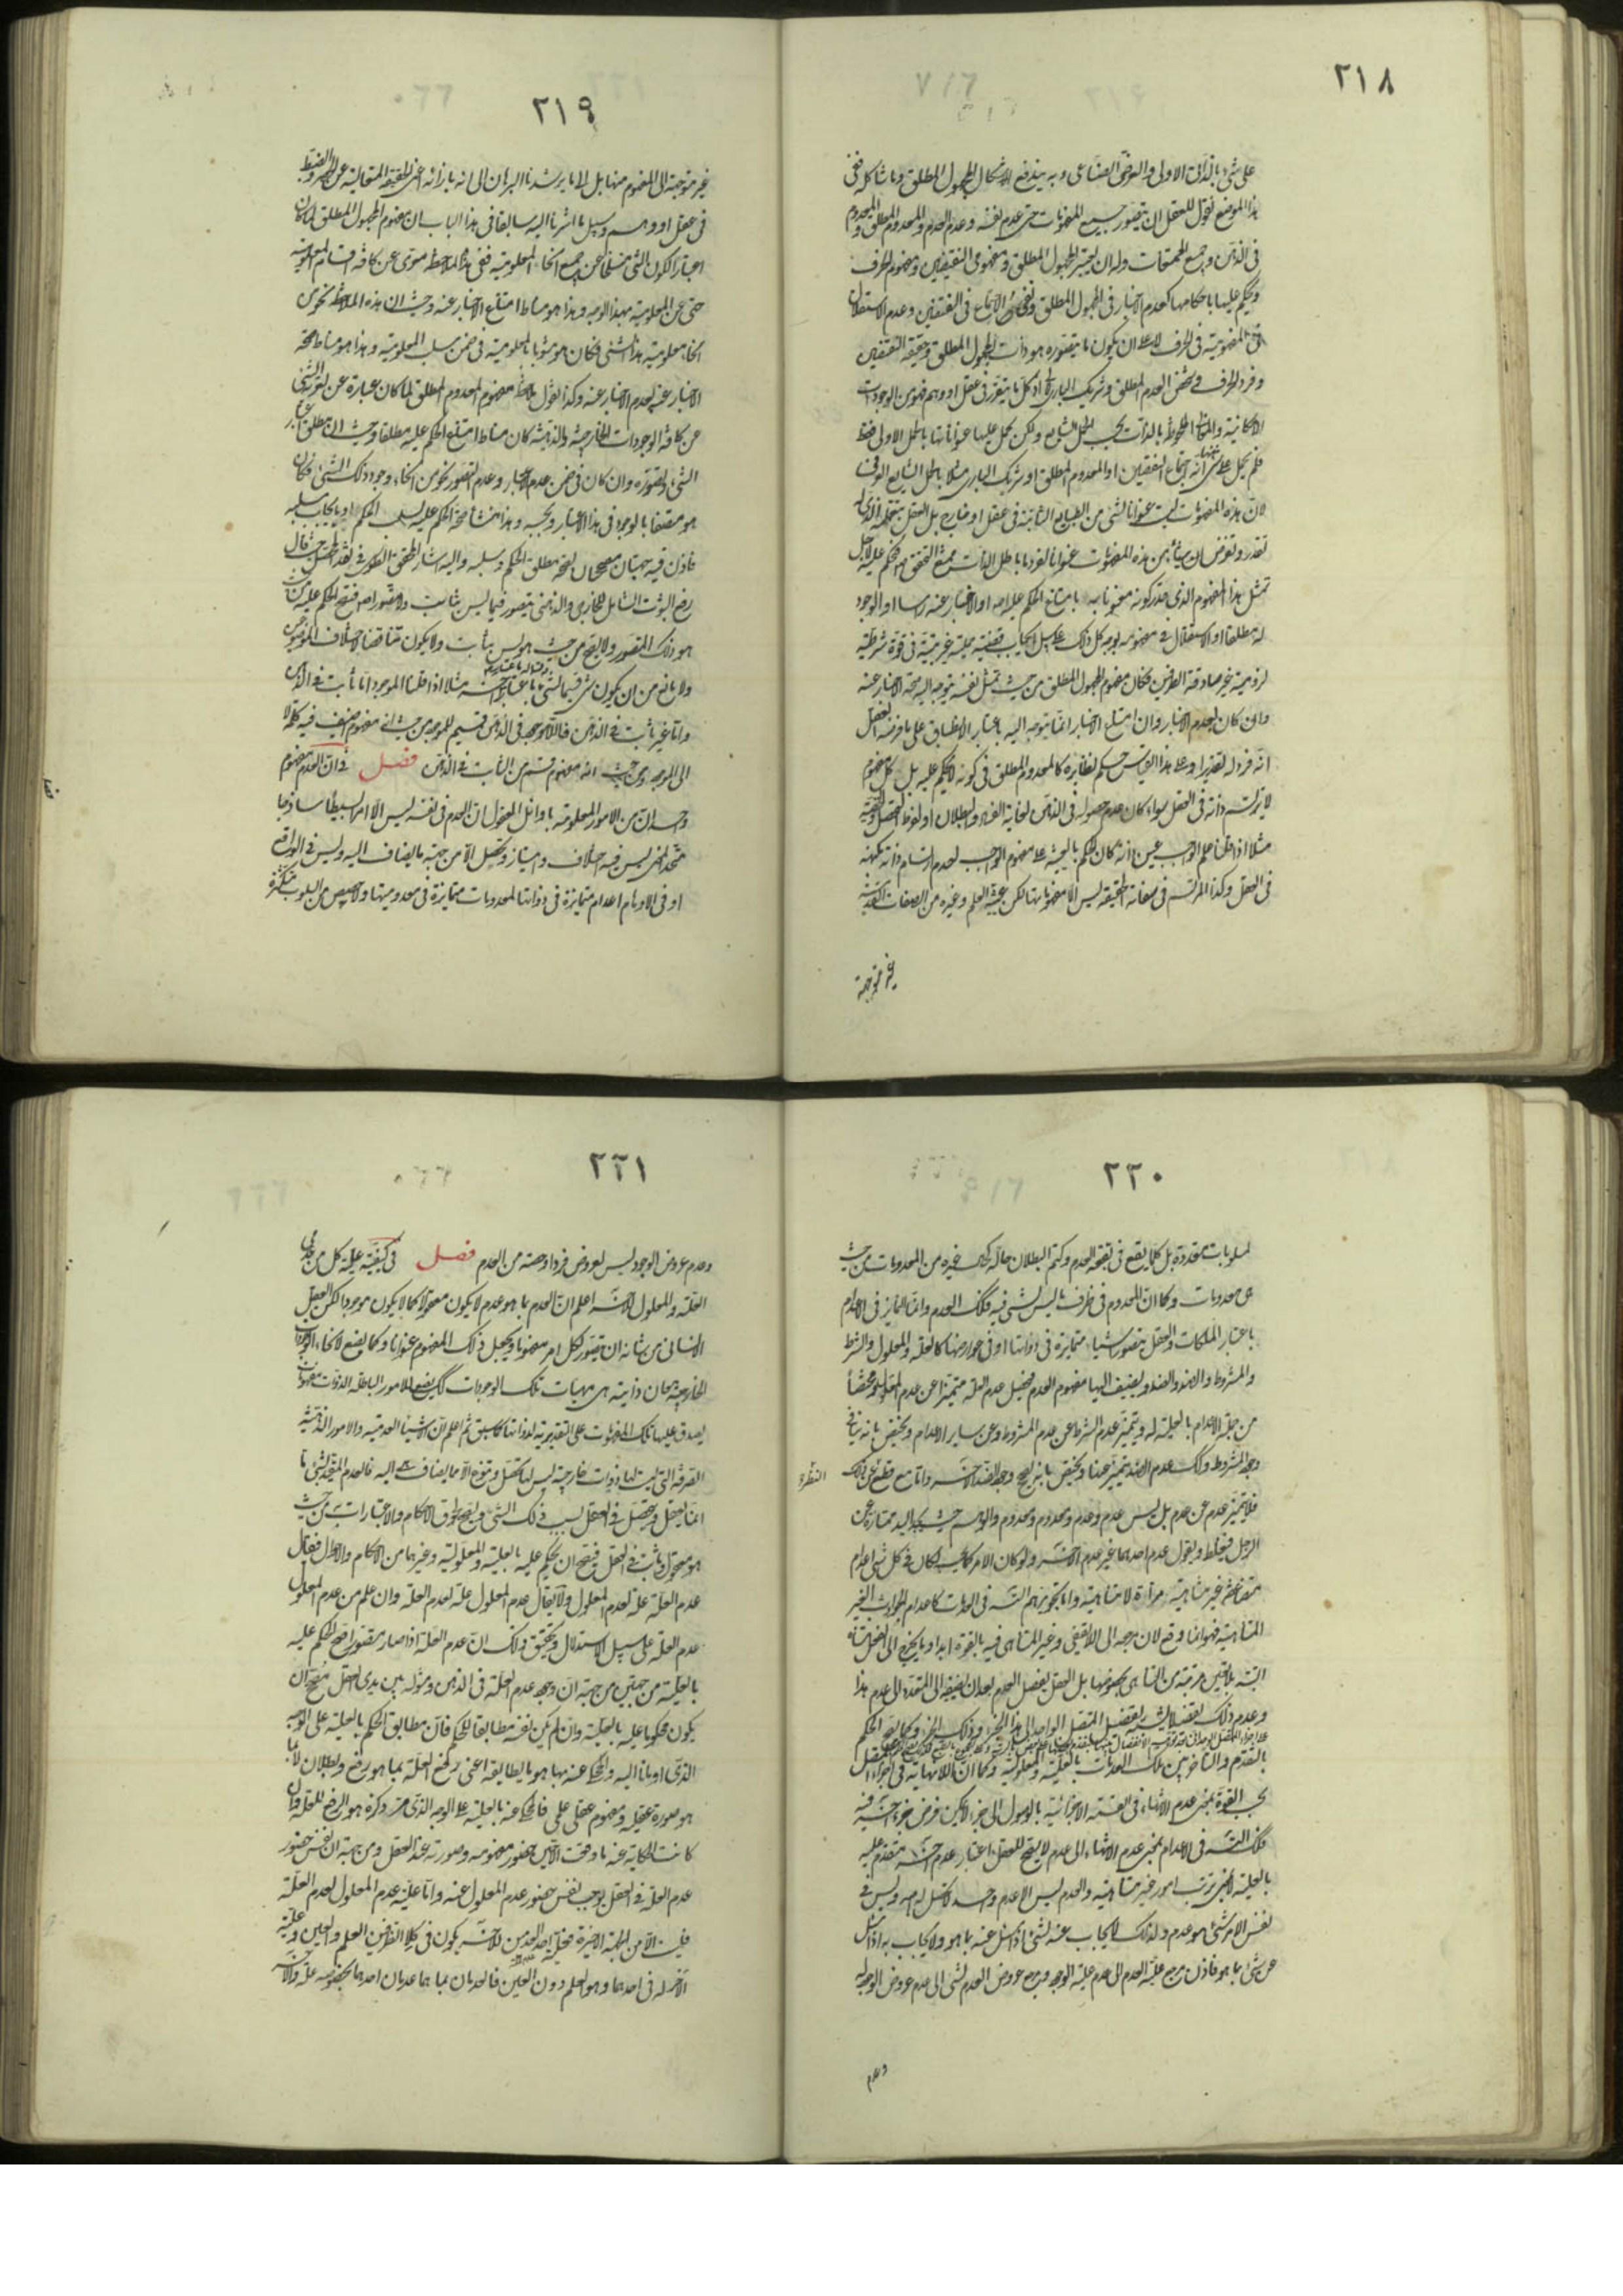 ٢١٨
على شيء بالذاتي الاولى والعرضي الصناعي وبه يندفع اشكال المجهول المطلق وما شاكله ففي
هذا الموضع نقول للعقل ان يتصور جميع المفهومات حتى عدم نفسه وعدم العدم والمعدوم المطلق والمعدوم
في الذهن وجميع الممتنعات وله ان يعتبر المجهول المطلق ومفهومي النقيضين ومفهوم الحرف
ويحكم عليها باحكامها كعدم الاخبار في المجهول المطلق ونفي الاجتماع في النقيضين وعدم الاستقلال
في المفهومية في الحرف لا على ان يكون ما يتصوره هو ذات المجهول المطلق وحقيقة النقيضين
وفرد الحرف وشخص العدم المطلق وشريك الباري اذ كل ما يتقرر في عقل او وهم فهو من الموجودات
الامكانية بالذات بحسب الحمل الشايع ولكن يحمل عليها عنواناتها بالحمل الاولى فقط
فلم يحمل على شيء منها انه اجتماع النقيضين او المعدوم المطلق او شريك الباري مثلا بالحمل الشايع العرضي
لان هذه المفهومات ليست عنوانا لشيء من الطبايع الثابتة في عقل او خارج بل العقل بتعمله الذي له
يقدر ويفرض ان شيئا من هذه المفهومات عنوان لفرد ما باطل الذات ممتنع التحقق فيحكم عليه لاجل
تمثل هذا المفهوم الذي قدر كونه عنوانا به بامتناع الحكم عليه او الاخبار عنه راسا او الوجود
له مطلقا او الاستقلال في مفهومه بوجه كل ذلك على سبيل ايجاب قضية حملية غير بتية في قوة شرطية
لزومية غير صادقة الطرفين فكان مفهوم المجهول المطلق من حيث تمثل نفسه يتوجه اليه صحة الاخبار عنه
وان كان بعدم الاخبار وان امتناع الاخبار انما يتوجه اليه باعتبار الانطباق على ما فرضه العقل
انه فرد له تقديرا وعلى هذا القياس حكم نظايره كالمعدوم المطلق في كونه لا يحكم عليه بل كل مفهوم
لا يرتسم ذاته في العقل سواء كان عدم حصوله في الذهن لغاية الفساد والبطلان او لفرط التحصل والحقيقة
مثلا اذا قلنا علم الواجب عين ذاته كان الحكم بالعينية على مفهوم الواجب لعدم ارتسام ذاته بكنهه
في العقل وكذا المرتسم في صفاته الحقيقية ليس الا مفهوماتها لكن عينية العلم وغيره من الصفات القدسية
غير متوجهة
٢١٩
غير متوجهة الى المفهوم منها بل الى ما يرشدنا البرهان الى انه بازائه اعني الحقيقة المتعالية عن الحصر والضبط
في عقل او وهم وسبيل ما اشرنا اليه سابقا في هذا الباب ان مفهوم المجهول المطلق لما كان
اعتبارا لكون الشيء منسلخا عن جميع انحاء المعلومية ففي هذا الملاحظة معرى عن كافة اقسام المعلومية
حتى عن المعلومية بهذا الوجه وهذا هو مناط امتناع الاخبار عنه وحيث ان هذه الملاحظة نحو من
انحاء معلومية هذا الشيء فكان هو مشوبا بالمعلومية في ضمن سلب المعلومية وهذا هو مناط صحة
الاخبار عنه بعدم الاخبار عنه وكذا نقول ملاحظة مفهوم المعدوم المطلق لما كان عبارة عن تعرية الشيء
عن كافة الوجودات الخارجية والذهنية كان مناط امتناع الحكم عليه مطلقا وحيث ان مطلق اعتبار
الشيء وتصوره وان كان في ضمن عدم الاعتبار وعدم التصور نحو من انحاء وجود ذلك الشيء فكان
هو متصفا بالوجود في هذا الاعتبار وبحسبه وهذا منشأ صحة الحكم عليه بسلب الحكم او بايجاب سلبه
فاذن فيه جهتان مصححتان لصحة مطلق الحكم وسلبه واليه اشار المحقق الطوسي في نقد المحصل حيث قال
رفع الثبوت الشامل للخارجي والذهني يتصور فيما ليس بثابت ولا متصور اصلا فيصح الحكم عليه من حيث
هو ذلك المتصور ولا يصح من حيث هو ليس بثابت ولا يكون تناقضا لاختلاف الموضوعين
ولا مانع من ان يكون شيء قسيما لشيء باعتبار وقسما منه باعتبار مثلا اذا قلنا الموجود اما ثابت في الذهن
واما غير ثابت في الذهن فاللاموجود في الذهن قسيم للموجود من حيث انه مفهوم اضيف فيه كلمة لا
الى الموجود ومن حيث انه مفهوم قسم من الثابت في الذهن فصل في ان العدم مفهوم
واحد ان من الامور المعلومة باوائل العقول ان العدم في نفسه ليس الا امرا بسيطا ساذجا
متحد المعنى ليس فيه اختلاف وامتياز وتحصل الا من جهة ما يضاف اليه وليس في الواقع
او في الاوهام اعدام متمايزة في ذواتها لمعدومات متمايزة في معدوميتها ولا حصص من السلوب متكثرة
٢٢٠
لمسلوبات متعددة بل كلما يقع في بقعة العدم وكتم البطلان حاله كحال غيره من المعدومات من حيث
هي معدومات وكما ان المعدوم في ظرف ما ليس بشيء فيه فكذلك العدم وانما التمايز في الاعدام
باعتبار الملكات والعقل يتصور اشياء متمايزة في ذواتها او في عوارضها كالعلة والمعلول والشرط
والمشروط والضد والضد ويضيف اليها مفهوم العدم فيحصل عدم العلة متميزا عن عدم المعلول ومختصا
من جملة الاعدام بالعلية له ويتميز عدم الشرط عن عدم المشروط وعن ساير الاعدام ويختص بانه ينافي
وجود المشروط وكذلك عدم الضد يتميز عنها ويختص بانه يصحح وجود الضد الآخر واما مع قطع النظر عن ذلك
فلا يتميز عدم عن عدم بل ليس عدم وعدم ومعدوم ومعدوم والوهم حيث يجد اليد ممتازة عن
الرجل فيغلط ويقول عدم احدهما غير عدم الآخر ولو كان الامر كما يحسبه لكان في كل شيء اعدام
متضاعفة غير متناهية مرات لا متناهية واما تجويزهم التسلسل في العدمات كاعدام الحوادث الغير
المتناهية فهو انما وقع لان مرجعه الى اللايقفي وغير المتناهي فيه بالقوة ابدا وما يخرج الى الفعل متناه
البتة بلا تعين مرتبة من التناهي بخصوصها بل العقل يفصل العدم بعد ان يضيفه الى المتعدد الى عدم هذا
وعدم ذلك تفصيلا يشبه تفصيل المتصل الواحد الى هذا الجزء وذلك الجزء وكما يصح الحكم
بالتقدم والتاخر بين تلك العدمات بالعلية والمعلولية وكما ان اللانهاية في اجزاء المتصل
بحسب القوة بمعنى عدم الانتهاء في القسمة الاجزائية بالوصول الى جزء لا يمكن فرض جزء آخر فيه
فكذلك التسلسل في الاعدام بمعنى عدم الانتهاء الى عدم لا يصح للعقل اعتبار عدم آخر متقدم عليه
بالعلية لا بمعنى ترتب امور غير متناهية والعدم ليس الا عدم واحد لا تحصل له وليس في
نفس الامر شيء هو عدم ولذلك لا يجاب عنه بشيء اذا سئل عنه بما هو ولا يجاب به اذا سئل
عن شيء بما هو فاذن مرجع علية العدم الى عدم علية الوجود ومرجع عروض العدم لشيء الى عدم عروض الوجود له
وعدم
٢٢١
وعدم عروض الوجود ليس لعروض فرد او حصة من العدم فصل في كيفية علية كل من عدمي
العلة والمعلول للآخر اعلم ان العدم بما هو عدم لا يكون معقولا كما لا يكون موجودا لكن العقل
الانساني من شانه ان يتصور لكل امر مفهوما ويجعل ذلك المفهوم عنوانا وكما يضع لانحاء الوجودات
الخارجية معان ذاتية هي مهيات تلك الوجودات كذلك يضع للامور الباطلة الذوات مفهومات
يصدق عليها تلك المفهومات على التقديرية لذواتها كما سبق ثم اعلم ان الاشياء العدمية والامور الذهنية
الصرفة التي ليست لها ذوات خارجية ليس لها تحصل وتنوع الا بما يضاف هي اليه فالعدم المقيد بشيء ما
انما يعقل ويتحصل في العقل بسبب ذلك الشيء ويصح لحوق الاحكام والاعتبارات به من حيث
هو معقول وثابت في العقل فيصح ان يحكم عليه بالعلية والمعلولية وغيرهما من الاحكام والاحوال فيقال
عدم العلة علة لعدم المعلول ولا يقال عدم المعلول علة لعدم العلة وان علم من عدم المعلول
عدم العلة على سبيل الاستدلال وتحقيق ذلك ان عدم العلة اذا صار متصورا صح الحكم عليه
بالعلية من جهتين من جهة ان وجود عدم العلة في الذهن ومثوله بين يدي العقل مصحح ان
يكون محكوما عليه بالعلية وان لم يكن نفسه مطابقا للحكم فان مطابق الحكم بالعلية على الوجه
الذي اومانا اليه والمحكي عنه بها هو ما يطابقه اعني رفع العلة بما هو رفع وبطلان لا بما
هو صورة عقلية ومفهوم عقلي علمي فالمحكي عنه بالعلية على الوجه الذي مر ذكره هو الرفع للعلة وان
كانت الحكاية عنه ما وقعت الا حين حضور مفهومه وصورته عند العقل ومن جهة ان نفس حضور
عدم العلة في العقل يوجب نفس حضور عدم المعلول عنه واما علية عدم المعلول لعدم العلة
فليست الا من الجهة الاخيرة فعلية احد العدمين للآخر يكون في كلا الظرفين العلم والعين وعلية
الآخر له في احدهما وهو العلم دون العين فالعدمان بما هما عدمان احدهما بخصوصه علة والآخر